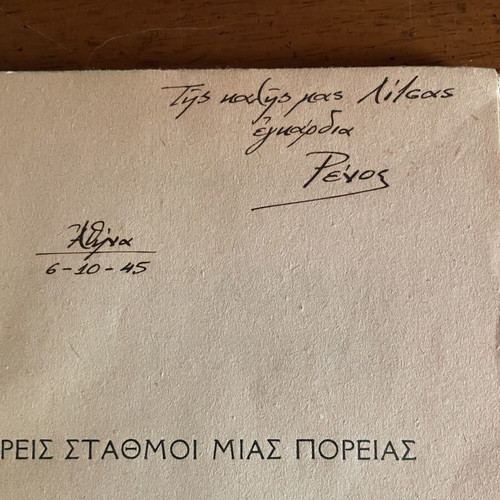 Τῆς καλῆς μας Λίτσας
ἐγκάρδια
Ρένος
Ἀθήνα
6-10-45
ΡΕΙΣ ΣΤΑΘΜΟΙ ΜΙΑΣ ΠΟΡΕΙΑΣ